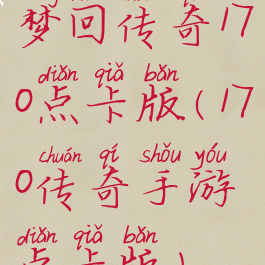 梦回传奇17
diǎn qiǎ bǎn
0点卡版(17
chuán qí shǒu yóu
0传奇手游
diǎn qiǎ bǎn
点卡版)